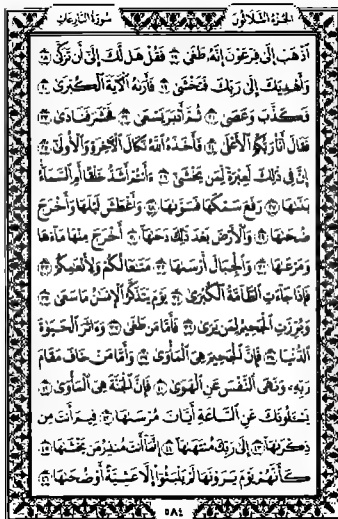 الجزء الثلاثون سورة النازعات
ٱذْهَبْ إِلَىٰ فِرْعَوْنَ إِنَّهُۥ طَغَىٰ ١٧ فَقُلْ هَل لَّكَ إِلَىٰٓ أَن تَزَكَّىٰ ١٨
وَأَهْدِيَكَ إِلَىٰ رَبِّكَ فَتَخْشَىٰ ١٩ فَأَرَىٰهُ ٱلْءَايَةَ ٱلْكُبْرَىٰ ٢٠
فَكَذَّبَ وَعَصَىٰ ٢١ ثُمَّ أَدْبَرَ يَسْعَىٰ ٢٢ فَحَشَرَ فَنَادَىٰ ٢٣
فَقَالَ أَنَا۠ رَبُّكُمُ ٱلْأَعْلَىٰ ٢٤ فَأَخَذَهُ ٱللَّهُ نَكَالَ ٱلْءَاخِرَةِ وَٱلْأُولَىٰٓ ٢٥
إِنَّ فِى ذَٰلِكَ لَعِبْرَةً لِّمَن يَخْشَىٰٓ ٢٦ ءَأَنتُمْ أَشَدُّ خَلْقًا أَمِ ٱلسَّمَآءُ
بَنَىٰهَا ٢٧ رَفَعَ سَمْكَهَا فَسَوَّىٰهَا ٢٨ وَأَغْطَشَ لَيْلَهَا وَأَخْرَجَ
ضُحَىٰهَا ٢٩ وَٱلْأَرْضَ بَعْدَ ذَٰلِكَ دَحَىٰهَآ ٣٠ أَخْرَجَ مِنْهَا مَآءَهَا
وَمَرْعَىٰهَا ٣١ وَٱلْجِبَالَ أَرْسَىٰهَا ٣٢ مَتَٰعًا لَّكُمْ وَلِأَنْعَٰمِكُمْ ٣٣
فَإِذَا جَآءَتِ ٱلطَّآمَّةُ ٱلْكُبْرَىٰ ٣٤ يَوْمَ يَتَذَكَّرُ ٱلْإِنسَٰنُ مَا سَعَىٰ ٣٥
وَبُرِّزَتِ ٱلْجَحِيمُ لِمَن يَرَىٰ ٣٦ فَأَمَّا مَن طَغَىٰ ٣٧ وَءَاثَرَ ٱلْحَيَوٰةَ
ٱلدُّنْيَا ٣٨ فَإِنَّ ٱلْجَحِيمَ هِىَ ٱلْمَأْوَىٰ ٣٩ وَأَمَّا مَنْ خَافَ مَقَامَ
رَبِّهِۦ وَنَهَى ٱلنَّفْسَ عَنِ ٱلْهَوَىٰ ٤٠ فَإِنَّ ٱلْجَنَّةَ هِىَ ٱلْمَأْوَىٰ ٤١
يَسْـَٔلُونَكَ عَنِ ٱلسَّاعَةِ أَيَّانَ مُرْسَىٰهَا ٤٢ فِيمَ أَنتَ مِن
ذِكْرَىٰهَآ ٤٣ إِلَىٰ رَبِّكَ مُنتَهَىٰهَآ ٤٤ إِنَّمَآ أَنتَ مُنذِرُ مَن يَخْشَىٰهَا ٤٥
كَأَنَّهُمْ يَوْمَ يَرَوْنَهَا لَمْ يَلْبَثُوٓا۟ إِلَّا عَشِيَّةً أَوْ ضُحَىٰهَا ٤٦
٥٨٤